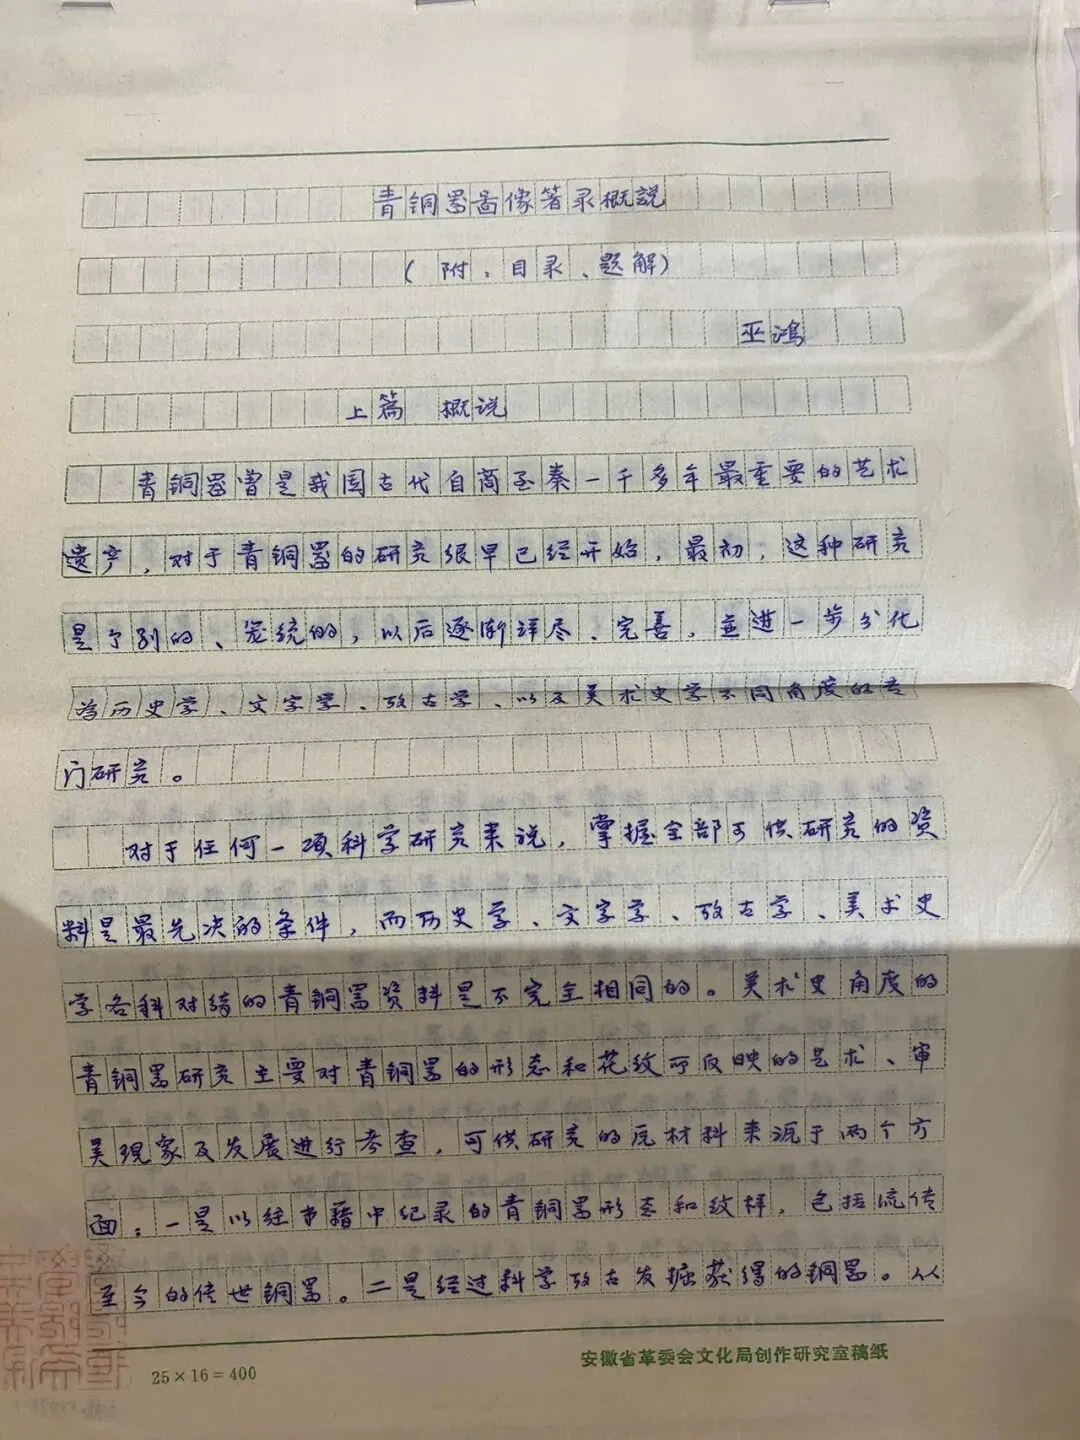 青铜器图像著录概说
(附:目录、题解)
巫鸿
上篇 概说
青铜器曾是我国古代自商至秦一千多年最重要的艺术
遗产,对于青铜器的研究很早已经开始,最初,这种研究
是个别的、笼统的,以后逐渐详尽、完善,并进一步分化
为历史学、文字学、考古学、以及美术史学不同角度的专
门研究。
对于任何一项科学研究来说,掌握全部可供研究的资
料是最先决的条件,而历史学、文字学、考古学、美术史
学各科对待的青铜器资料是不完全相同的。美术史角度的
青铜器研究主要对青铜器的形态和花纹所反映的艺术、审
美现象及发展进行考查,可供研究的原材料来源于两个方
面:一是以往书籍中纪录的青铜器形态和纹样,包括流传
至今的传世铜器。二是经过科学考古发掘获得的铜器。从
25×16=400
安徽省革委会文化局创作研究室稿纸